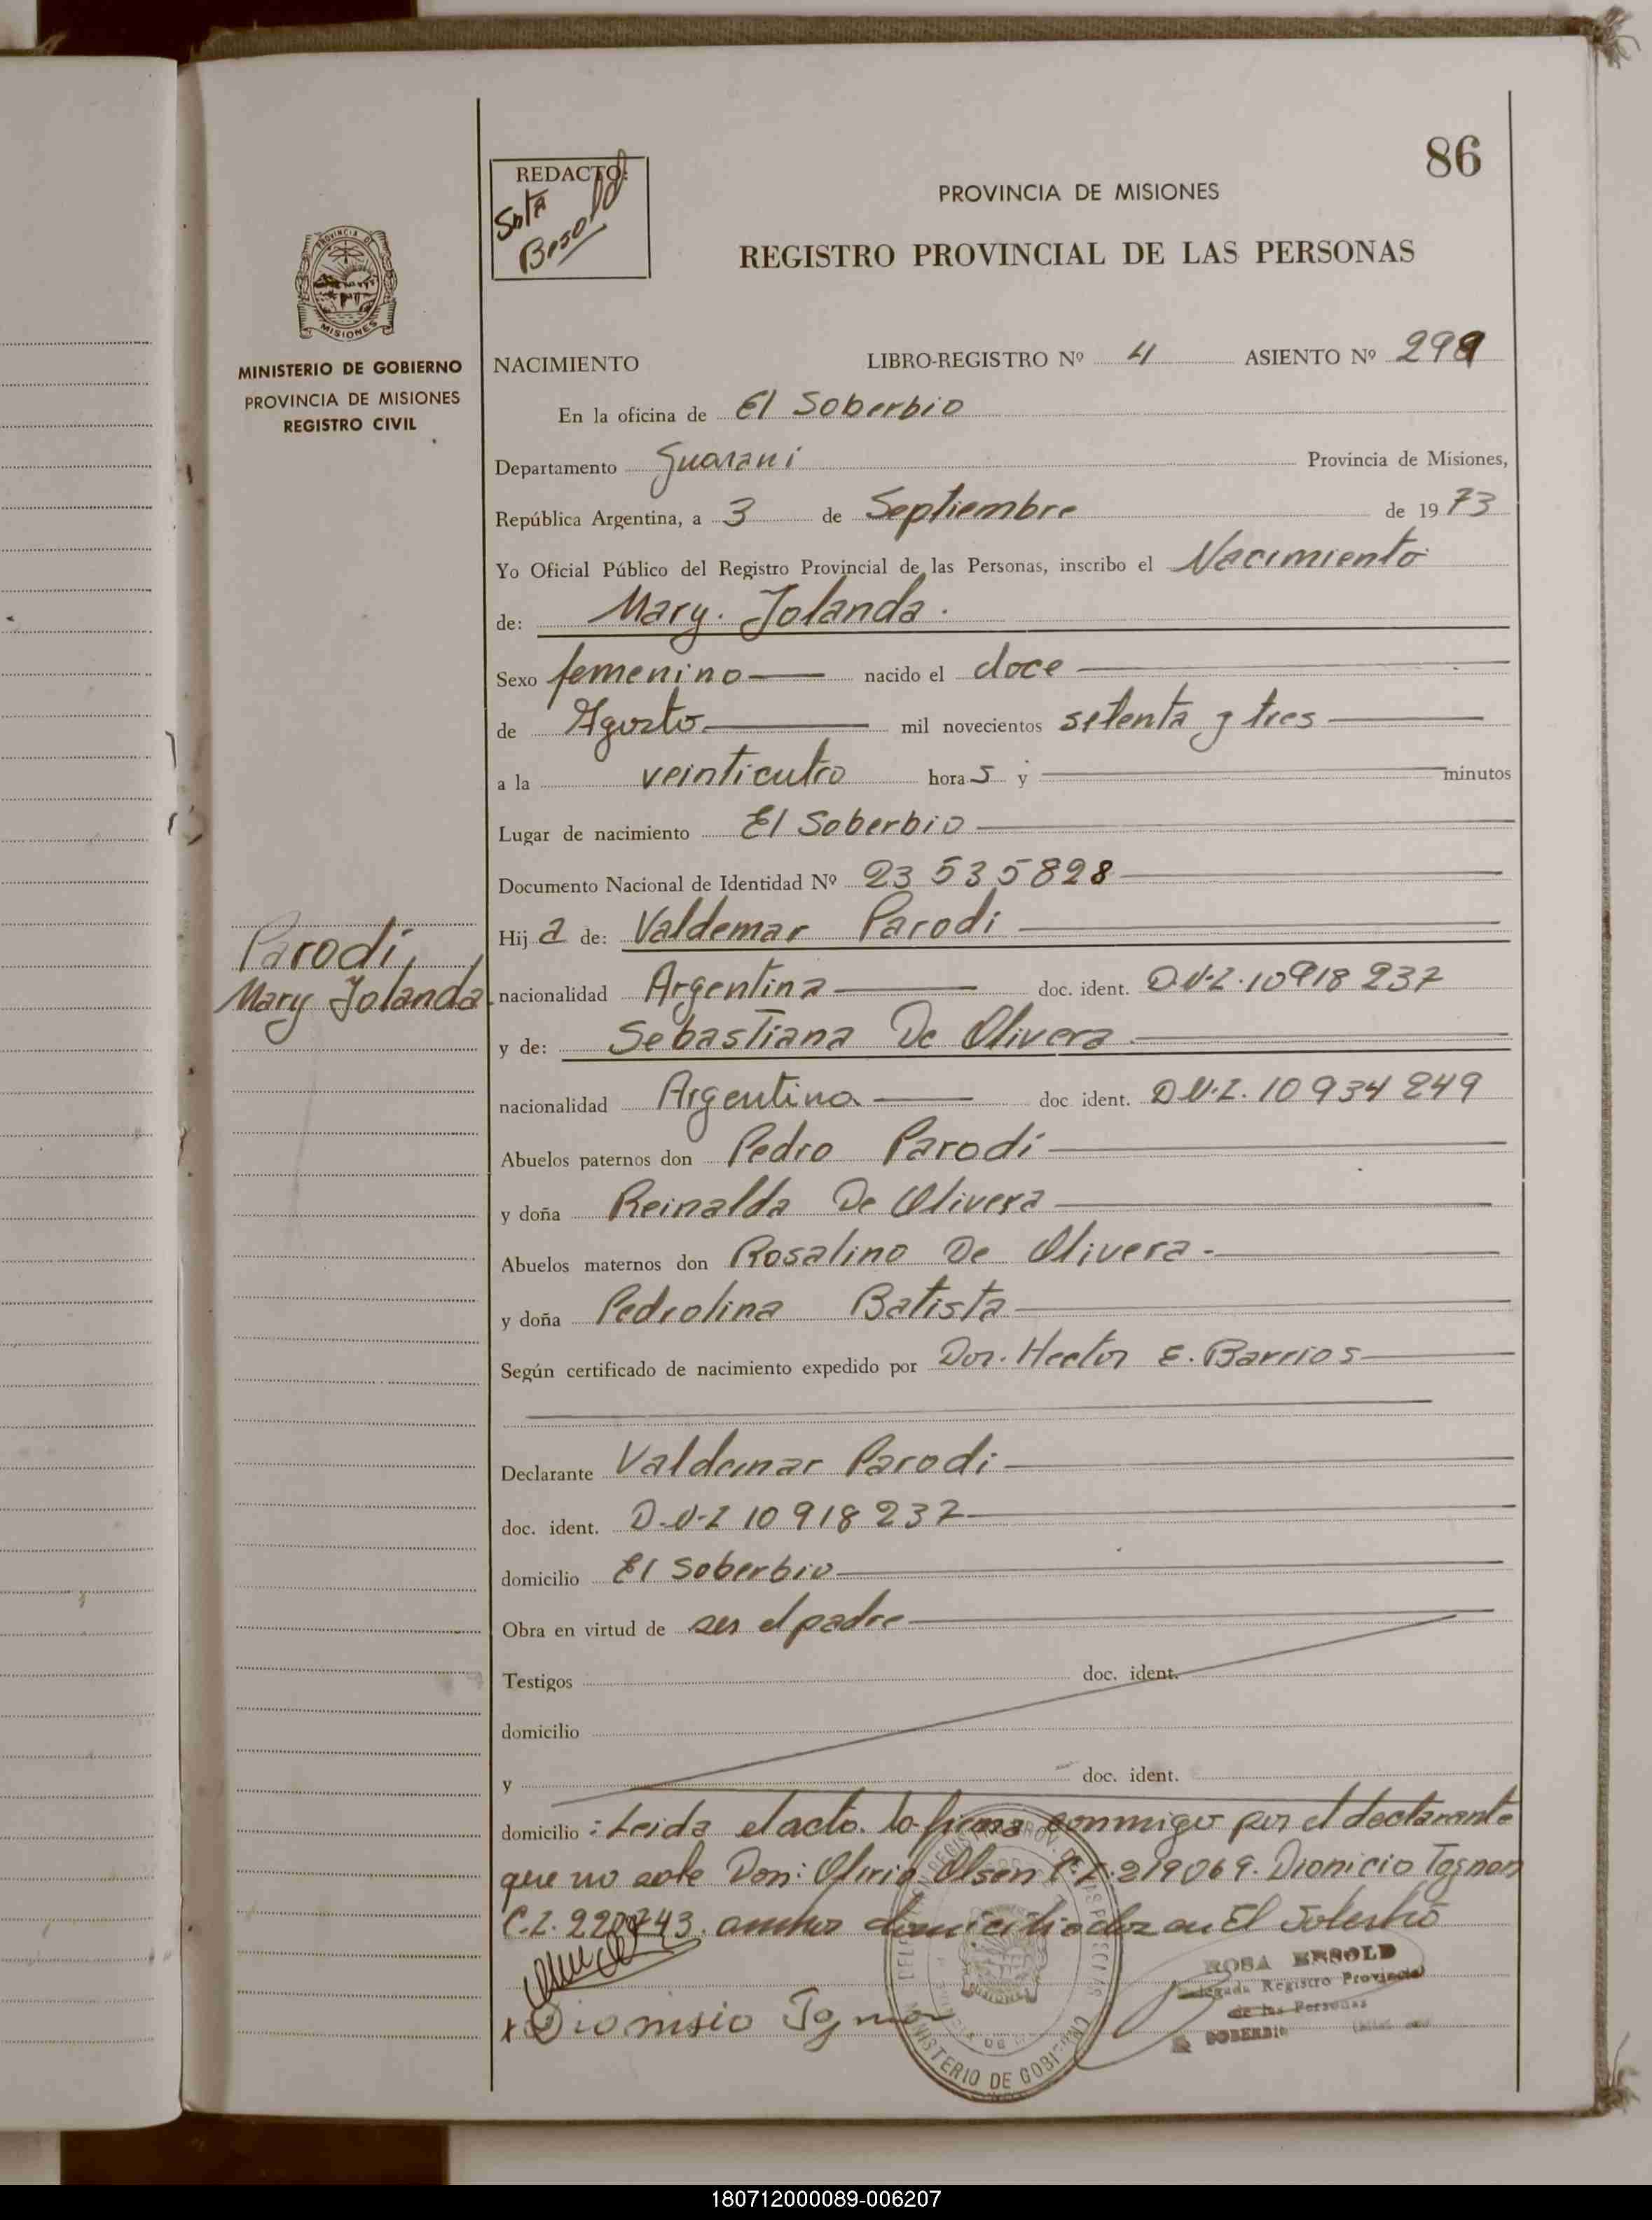 86
REDACTO:
Sota
Besold
PROVINCIA DE MISIONES
REGISTRO PROVINCIAL DE LAS PERSONAS
PROVINCIA DE
MISIONES
MINISTERIO DE GOBIERNO
PROVINCIA DE MISIONES
REGISTRO CIVIL
NACIMIENTO LIBRO-REGISTRO Nº 4 ASIENTO Nº 299
En la oficina de El Soberbio
Departamento Guarani Provincia de Misiones,
República Argentina, a 3 de Septiembre de 1973
Yo Oficial Público del Registro Provincial de las Personas, inscribo el Nacimiento
de: Mary. Jolanda.
Sexo femenino nacido el doce
de Agosto mil novecientos setenta y tres
a la veinticutro horas y minutos
Lugar de nacimiento El Soberbio
Documento Nacional de Identidad Nº 23 535828
Hija de: Valdemar Parodi
Parodi,
Mary Jolanda.
nacionalidad Argentina doc. ident. D.N.I. 10918 237
y de: Sebastiana De Olivera
nacionalidad Argentina doc ident. D.N.I. 10 934 849
Abuelos paternos don Pedro Parodi
y doña Reinalda De Olivera
Abuelos maternos don Rosalino De Olivera
y doña Pedrolina Batista
Según certificado de nacimiento expedido por Dor. Hector E. Barrios
Declarante Valdemar Parodi
doc. ident. D.N.I 10 918 237
domicilio El Soberbio
Obra en virtud de ser el padre
Testigos doc. ident.
domicilio
y doc. ident.
domicilio: Leida el acto. la firma conmigo por el declarante
que no sabe Don: Olirio Olsen C.I. 219069. Dionicio Tognon
C.I. 220743. ambos domiciliados en El Soberbio
ROSA BESOLD
Delegada Registro Provincial
de las Personas
SOBERBIO
x Dionisio Togno
MINISTERIO DE GOBIERNO
180712000089-006207